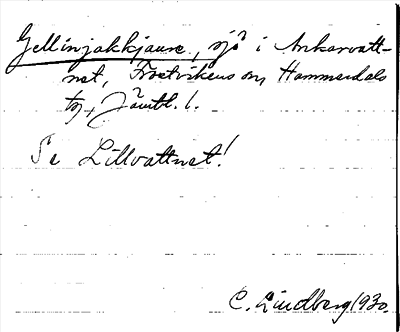 Gellinjakkjaure, sjö i Ankarvatt-
net, Frostvikens sn, Hammerdals
tg, Jämtl. l.
Se Lillvattnet!
C. Lindberg 1930.